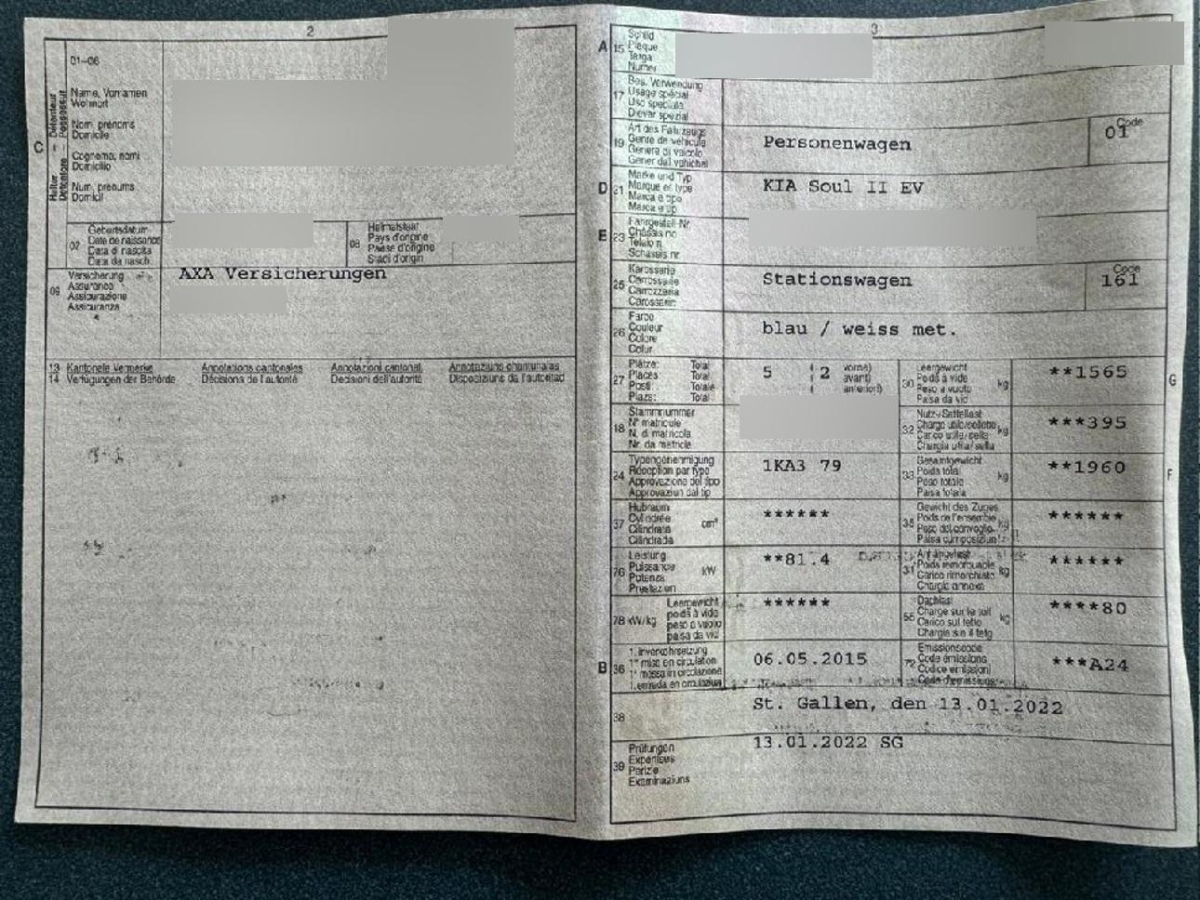 2
01-06
C
Halter – Détenteur
Detentore – Possessur
Name, Vornamen
Wohnort
Nom, prénoms
Domicile
Cognome, nomi
Domicilio
Num, prenums
Domicil
07
Geburtsdatum
Date de naissance
Data di nascita
Data da nasch.
08
Heimatstaat
Pays d'origine
Paese d'origine
Stadi d'origin
09
Versicherung
Assurance
Assicurazione
Assicuranza
AXA Versicherungen
13 Kantonale Vermerke
14 Verfügungen der Behörde
Annotations cantonales
Décisions de l'autorité
Annotazioni cantonali
Decisioni dell'autorità
Annotaziuns chantunalas
Disposiziuns da l'autoritad
3
A 15
Schild
Plaque
Targa
Numer
17
Bes. Verwendung
Usage spécial
Uso speciale
Diever spezial
19
Art des Fahrzeugs
Genre de véhicule
Genere di veicolo
Gener dal vehichel
Personenwagen
Code
01
D 21
Marke und Typ
Marque et type
Marca e tipo
Marca e tip
KIA Soul II EV
E 23
Fahrgestell-Nr.
Châssis no
Telaio n.
Schassis nr.
25
Karosserie
Carrosserie
Carrozzeria
Carossaria
Stationswagen
Code
161
26
Farbe
Couleur
Colore
Colur
blau / weiss met.
27
Plätze: Total
Places: Total
Posti: Totale
Plazs: Total
5 ( 2 vorne)
avant)
anteriori)
30
Leergewicht
Poids à vide
Peso a vuoto
Paisa da vid
kg
**1565
G
18
Stammnummer
N° matricule
N. di matricola
Nr. da matricla
32
Nutz-/Sattellast
Charge utile/sellette
Carico utile/sella
Chargia utila/sella
kg
***395
24
Typengenehmigung
Réception par type
Approvazione del tipo
Approvaziun dal tip
1KA3 79
33
Gesamtgewicht
Poids total
Peso totale
Paisa totala
kg
**1960
F
37
Hubraum
Cylindrée
Cilindrata
Cilindrada
cm³
******
35
Gewicht des Zuges
Poids de l'ensemble
Peso del convoglio
Paisa cumposiziun
kg
******
76
Leistung
Puissance
Potenza
Prestaziun
kW
**81.4
31
Anhängelast
Poids remorquable
Carico rimorchiato
Chargia annexa
kg
******
78 kW/kg
Leergewicht
poids à vide
peso a vuoto
paisa da vid
******
55
Dachlast
Charge sur le toit
Carico sul tetto
Chargia sin il tetg
kg
****80
B 36
1. Inverkehrsetzung
1re mise en circulation
1a messa in circolazione
1. entrada en circulaziun
06.05.2015
72
Emissionscode
Code émissions
Codice emissioni
Code d'emissiuns
***A24
38
St. Gallen, den 13.01.2022
39
Prüfungen
Expertises
Perizie
Examinaziuns
13.01.2022 SG